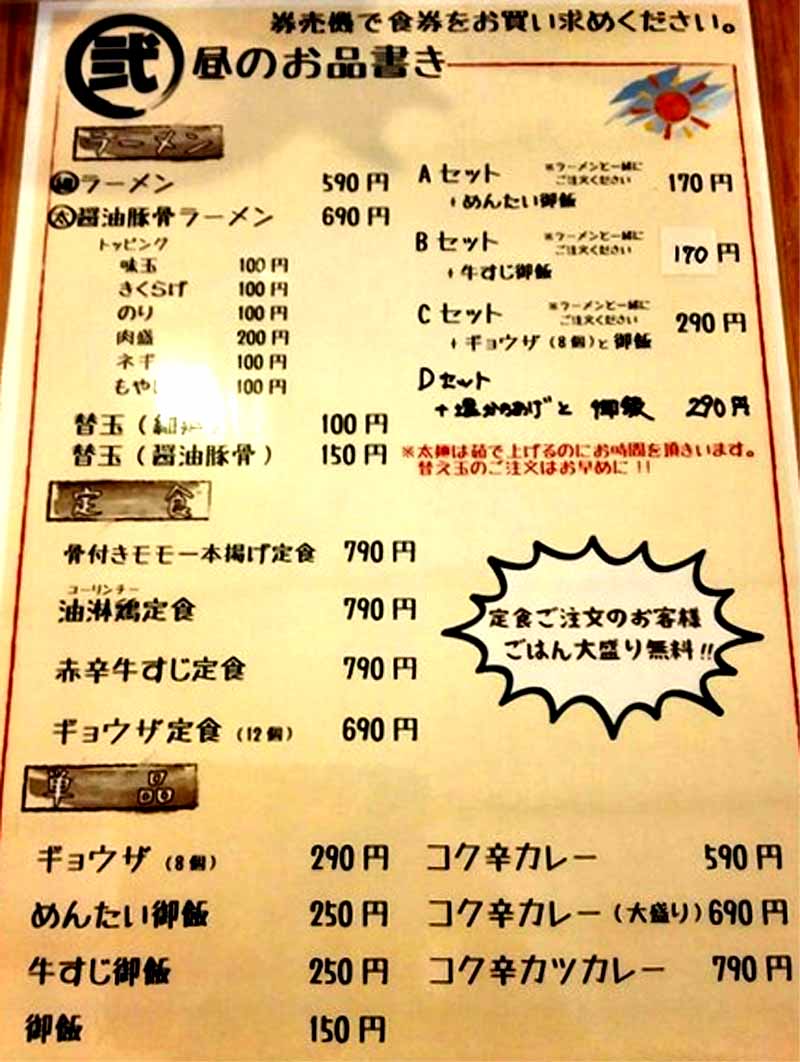 券売機で食券をお買い求めください。
弐 昼のお品書き
ラーメン
細ラーメン 590円
太醤油豚骨ラーメン 690円
トッピング
味玉 100円
きくらげ 100円
のり 100円
肉盛 200円
ネギ 100円
もやし 100円
替玉(細 100円
替玉(醤油豚骨) 150円
Aセット ※ラーメンと一緒に
ご注文ください 170円
+めんたい御飯
Bセット ※ラーメンと一緒に
ご注文ください 170円
+牛すじ御飯
Cセット ※ラーメンと一緒に
ご注文ください 290円
+ギョウザ(8個)と御飯
Dセット
+塩分のあげと 御飯 290円
※太麺は茹で上げるのにお時間を頂きいます。
替え玉のご注文はお早めに!!
定食
骨付きモモ一本揚げ定食 790円
コーリンチー
油淋鶏定食 790円
赤辛牛すじ定食 790円
ギョウザ定食(12個) 690円
定食ご注文のお客様
ごはん大盛り無料!!
単品
ギョウザ(8個) 290円
めんたい御飯 250円
牛すじ御飯 250円
御飯 150円
コク辛カレー 590円
コク辛カレー(大盛り) 690円
コク辛カツカレー 790円